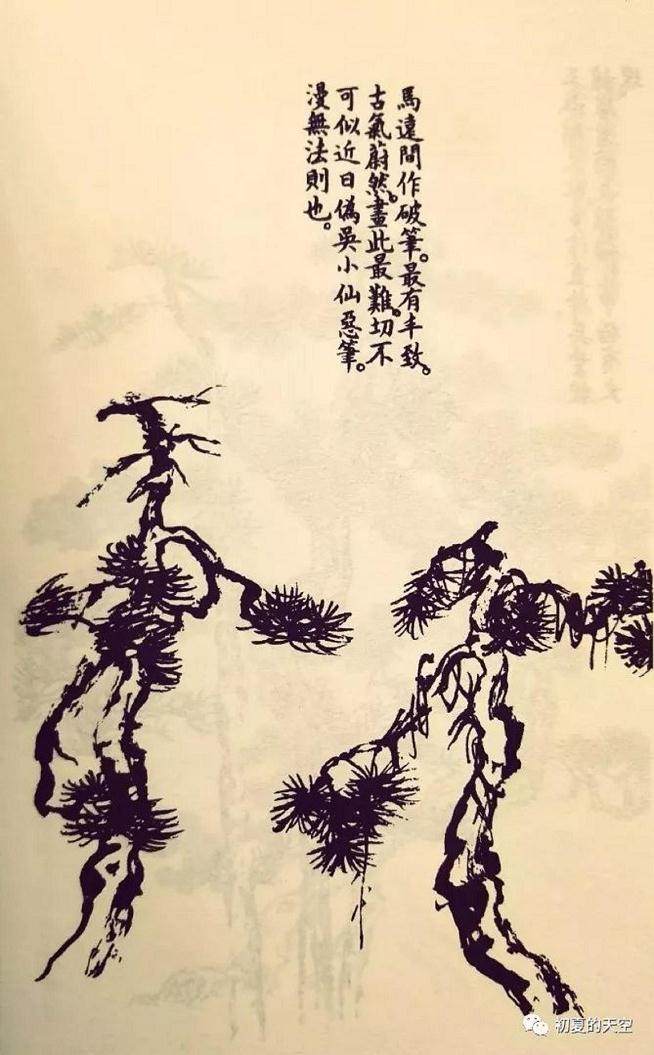 馬遠間作破筆。最有丰致。
古氣蔚然。畫此最難。切不
可似近日偽吳小仙惡筆。
漫無法則也。
初夏的天空